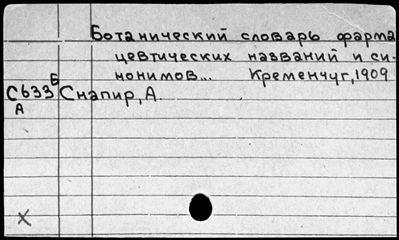 Ботанический словарь фарма
цевтических названий и си-
нонимов... Кременчуг, 1909
Б
С633 Снапир, А.
А
X